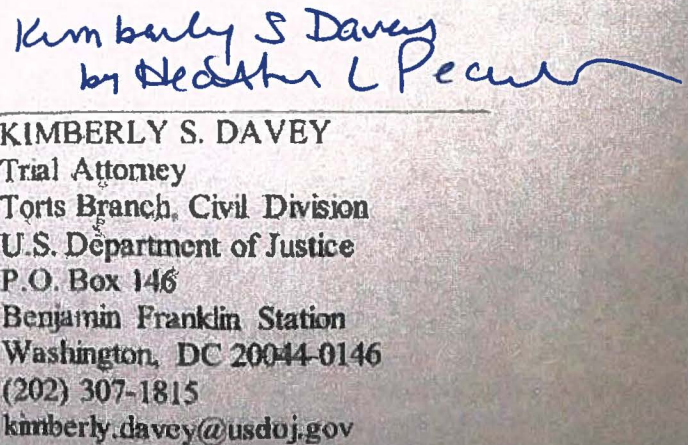 Kimberly S Davey
by Heather L Pearlman
KIMBERLY S. DAVEY
Trial Attorney
Torts Branch, Civil Division
U.S. Department of Justice
P.O. Box 146
Benjamin Franklin Station
Washington, DC 20044-0146
(202) 307-1815
kimberly.davey@usdoj.gov